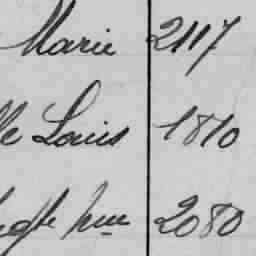 Marie 2117
lle Louis 1810
2080